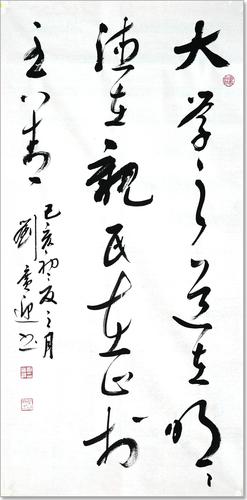 大学之道在明明
德在親民在止於
至善
己亥初夏之月
劉